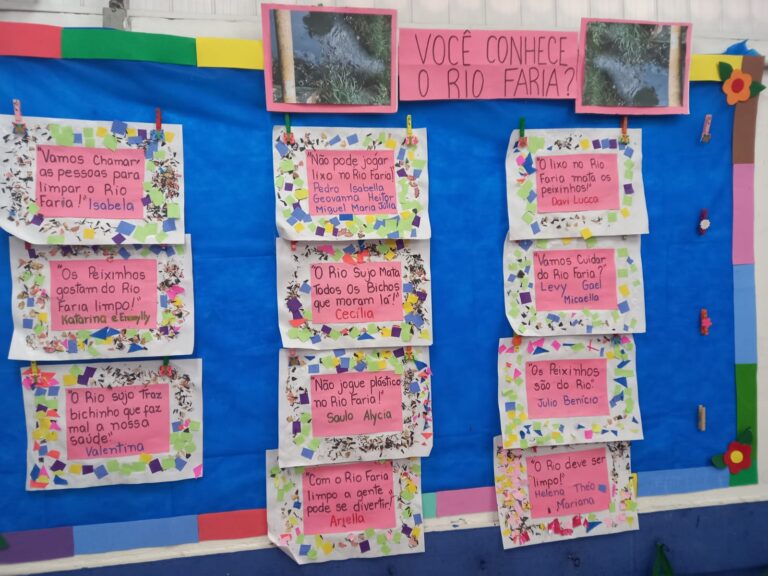 VOCÊ CONHECE
O RIO FARIA?
"Vamos Chamar
as pessoas para
limpar o Rio
Faria!" Isabela
"Os Peixinhos
gostam do Rio
Faria limpo!"
Katarina e Emanylly
"O Rio sujo Traz
bichinho que faz
mal a nossa
saúde"
Valentina
"Não pode jogar
lixo no Rio Faria!
Pedro Isabella
Geovanna Heitor
Miguel Maria Júlia
"O Rio Sujo Mata
Todos os Bichos
que moram lá!"
Cecília
"Não jogue plástico
no Rio Faria!"
Saulo Alycia
"Com o Rio Faria
limpo a gente
pode se divertir!"
Ariella
"O lixo no Rio
Faria mata os
peixinhos!"
Davi Lucca
"Vamos Cuidar
do Rio Faria?"
Levy Gael
Micaella
"Os Peixinhos
são do Rio"
Julio Benício
"O Rio deve ser
limpo!"
Helena Théo
Mariana